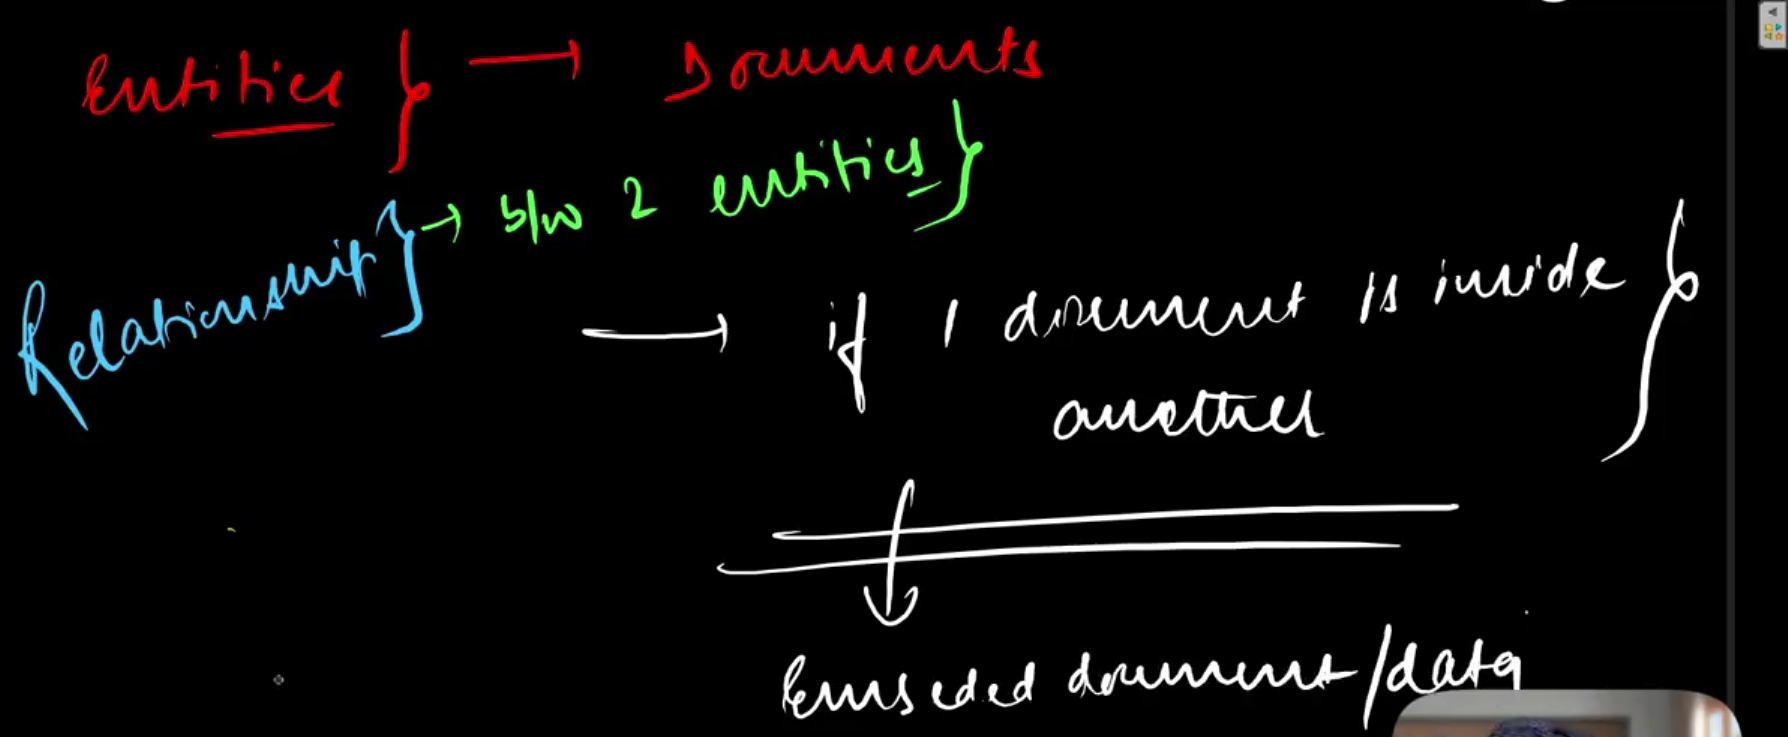 Entities } → Documents
Relationship } → b/w 2 entities }
→ if 1 document is inside
another
Embeded document/data